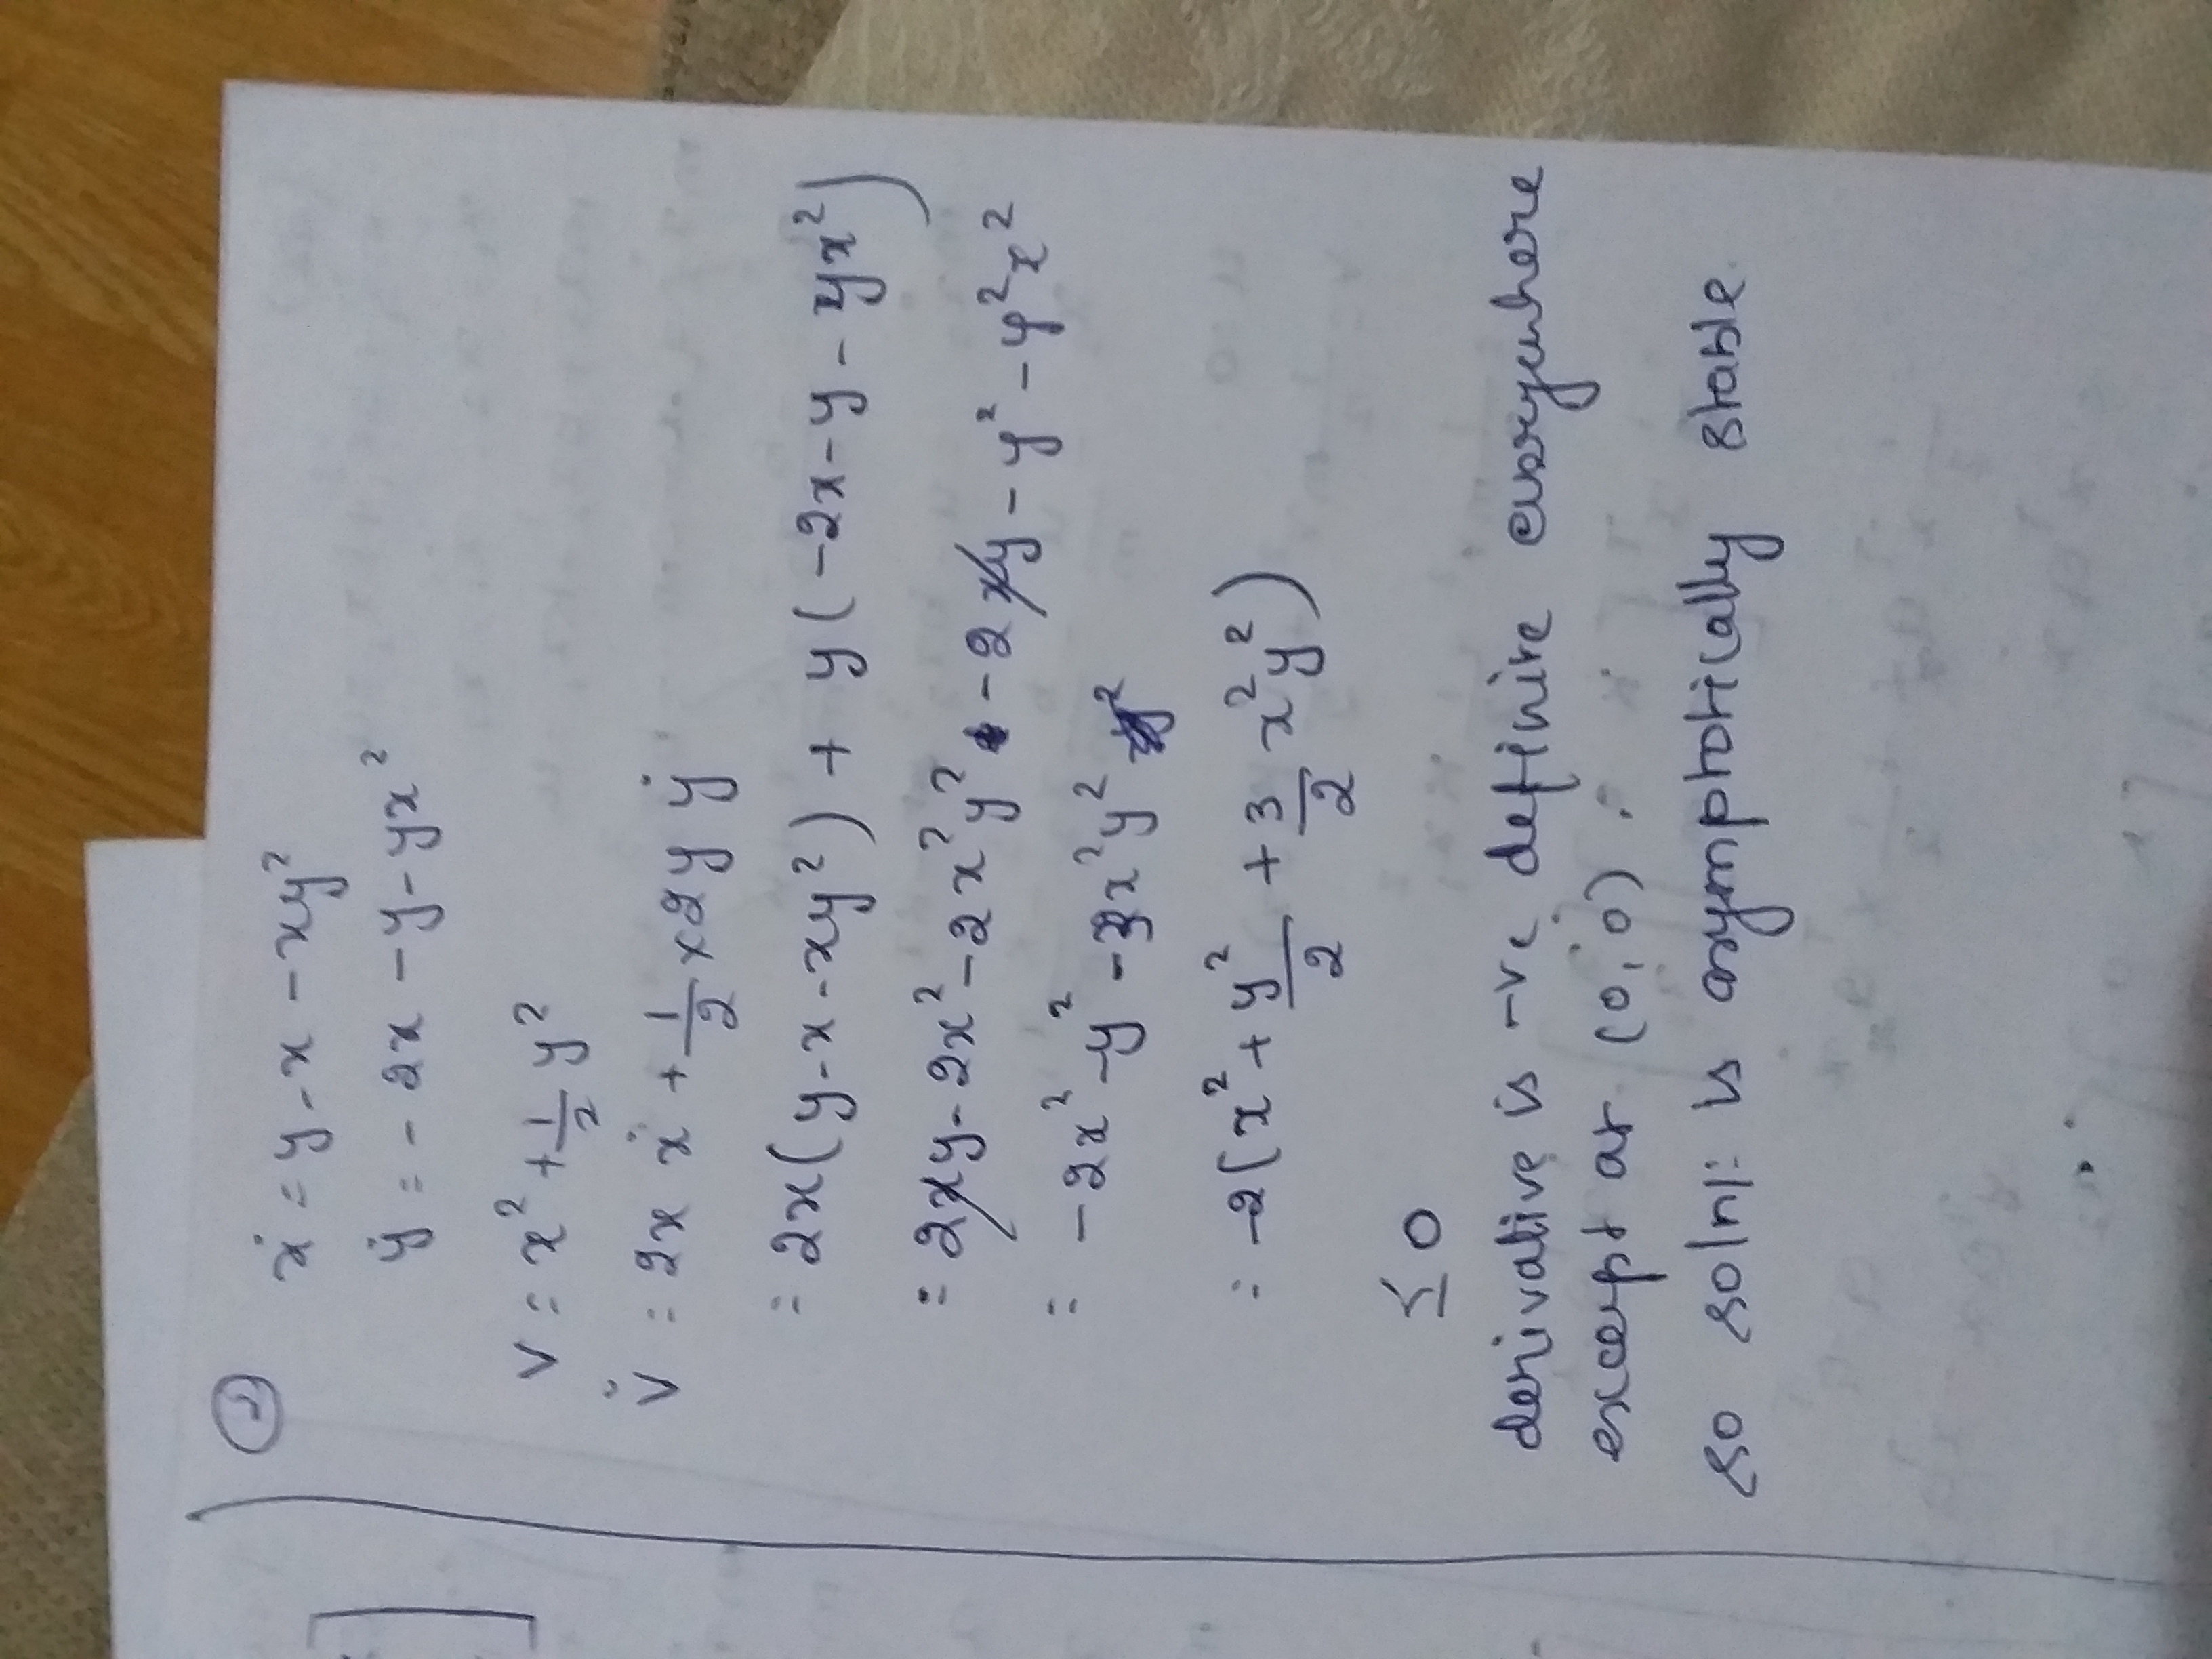 ②
ẋ = y - x - xy²
ẏ = - 2x - y - yx²
V = x² + 1/2 y²
V̇ = 2x ẋ + 1/2 × 2y ẏ
= 2x(y - x - xy²) + y(-2x - y - yx²)
= 2xy - 2x² - 2x²y² - 2xy - y² - y²x²
= -2x² - y² - 3x²y²
= -2(x² + y²/2 + 3/2 x²y²)
≤ 0
derivative is -ve definite everywhere
except at (0,0).
so soln: is asymptotically stable.